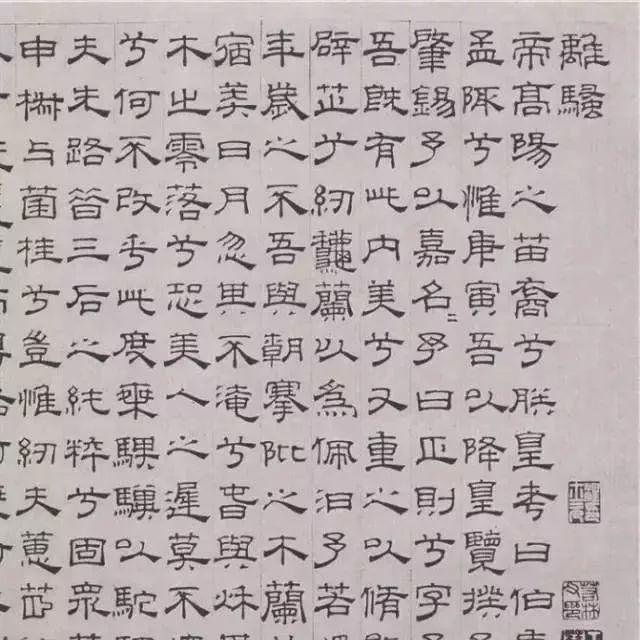 離騷
帝高陽之苗裔兮朕皇考曰伯
孟陬兮惟庚寅吾以降皇覽揆
肇錫予以嘉名〻予曰正則兮字予
吾既有此內美兮又重之以脩
辟芷兮紉龝蘭以為佩汩予若
年歲之不吾與朝搴阰之木蘭
宿莽日月忽其不淹兮春與秋
木之零落兮恐美人之遲莫不
兮何不改乎此度乗騏驥以駝
夫先路昔三后之純粹兮固眾
申椒与菌桂兮豈惟紉夫蕙茝